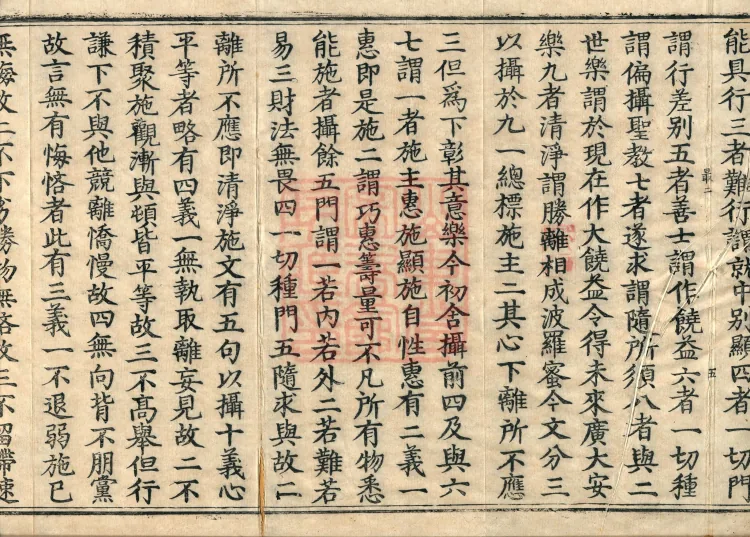 能具行三者難行謂就中別顯四者一切門
謂行差別五者善士謂作饒益六者一切種
謂偏攝聖教七者遂求謂隨所須八者與二
世樂謂於現在作大饒益令得未來廣大安
樂九者清淨謂勝離相成波羅蜜今文分三
以攝於九一總標施主二其心下離所不應
三但為下彰其意樂今初舍攝前四及與六
七謂一者施主惠施顯施自性惠有二義一
惠即是施二謂巧惠籌量可不凡所有物悉
能施者攝餘五門謂一若內若外二若難若
易三財法無畏四一切種門五隨求與故二
離所不應即清淨施文有五句以攝十義心
平等者略有四義一無執取離妄見故二不
積聚施觀漸與頓皆平等故三不高舉但行
謙下不與他競離憍慢故四無向背不朋黨
故言無有悔悋者此有三義一不退弱施已
無悔故二不下劣勝物無悋故三不留滯速
最二
五